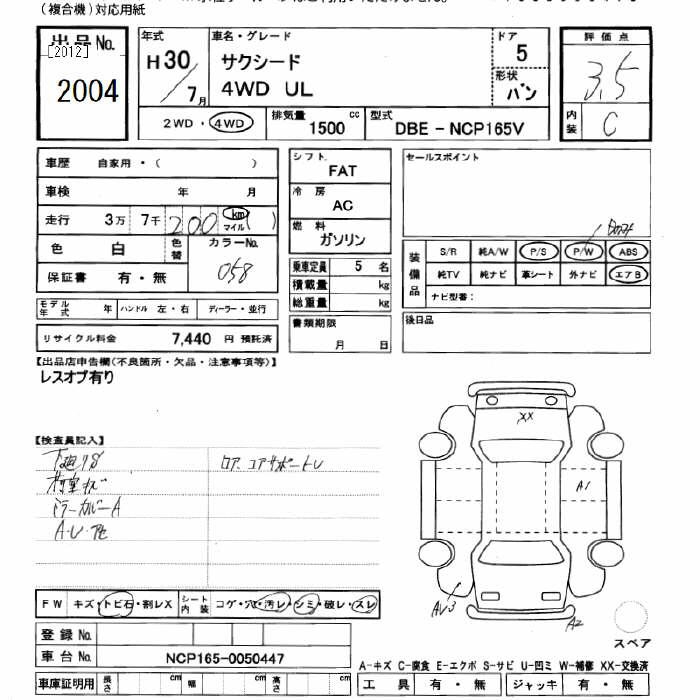 (複合機)対応用紙
出品No.
[2012]
2004
年式
H30/7月
車名・グレード
サクシード
4WD UL
ドア
5
形状
バン
評価点
3.5
内装
C
2WD・4WD
排気量 1500 cc
型式 DBE-NCP165V
車歴 自家用・( )
車検 年 月
走行 3万 7千 200 km マイル ( )
色 白 色替 カラーNo. 058
保証書 有・無
シフト
FAT
冷房
AC
燃料
ガソリン
乗車定員 5 名
積載量 kg
総重量 kg
書類期限
月 日
セールスポイント
装備品
S/R 純A/W P/S P/W ABS
純TV 純ナビ 革シート 外ナビ エアB
ナビ型番:
後日品
モデル年式 年 ハンドル 左・右 ディーラー・並行
リサイクル料金 7,440 円 預託済
【出品店申告欄(不良箇所・欠品・注意事項等)】
レスオプ有り
【検査員記入】
下廻りS
ロア、コアサポートU
ドラーカバーA
XX
A1
AU3
A2
スペア
FW キズ・トビ石・割レX シート内装 コゲ・穴・汚レ・シミ・破レ・スレ
登録No.
車台No. NCP165-0050447
車庫証明用 長さ cm 幅 cm 高さ cm
A-キズ C-腐食 E-エクボ S-サビ U-凹ミ W-補修 XX-交換済
工具 有・無 ジャッキ 有・無